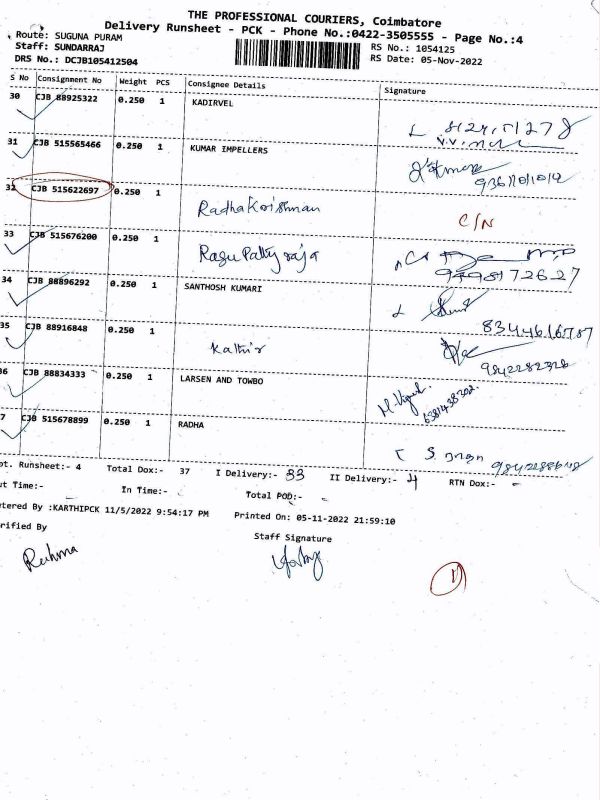 THE PROFESSIONAL COURIERS, Coimbatore
Delivery Runsheet - PCK - Phone No.:0422-3505555 - Page No.:4
Route: SUGUNA PURAM
Staff: SUNDARRAJ
RS No.: 1054125
DRS No.: DCJB105412504
RS Date: 05-Nov-2022
S No Consignment No Weight PCS Consignee Details Signature
30 CJB 88925322 0.250 1 KADIRVEL
31 CJB 515565466 0.250 1 KUMAR IMPELLERS
32 CJB 515622697 0.250 1 Radhakrishnan C/N
33 CJB 515676200 0.250 1 Ragu Patty raja
34 CJB 88896292 0.250 1 SANTHOSH KUMARI
35 CJB 88916848 0.250 1 Kathir 9842282328
36 CJB 88834333 0.250 1 LARSEN AND TOWBO
7 CJB 515678899 0.250 1 RADHA
pt. Runsheet:- 4 Total Dox:- 37 I Delivery:- 33 II Delivery:- 4 RTN Dox:- -
ut Time:- - In Time:- - Total POD:- -
tered By :KARTHIPCK 11/5/2022 9:54:17 PM Printed On: 05-11-2022 21:59:10
rified By Staff Signature